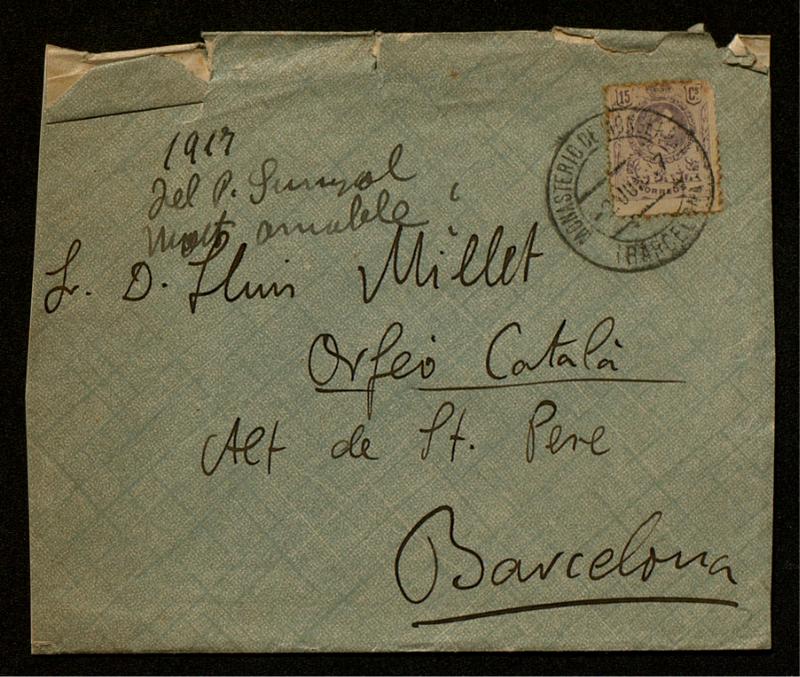 1917
del P. Sunyol
molt amable
Sr. D. Lluis Millet
Orfeó Català
Alt de St. Pere
Barcelona
15 Cs
CORREOS
MONASTERIO DE MONSERRAT
(BARCELONA)